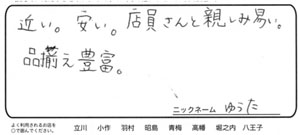 近い。安い。店員さんと親しみ易い。
品揃え豊富。
ニックネーム ゆうた
よく利用されるお店を
○で囲んでください。 立川 小作 羽村 昭島 青梅 高幡 堀之内 八王子